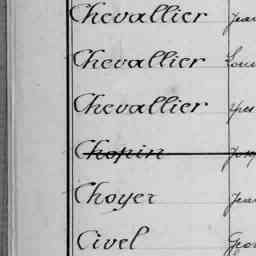 Chevallier
Chevallier
Chevallier
Chopin
Choyer
Civel